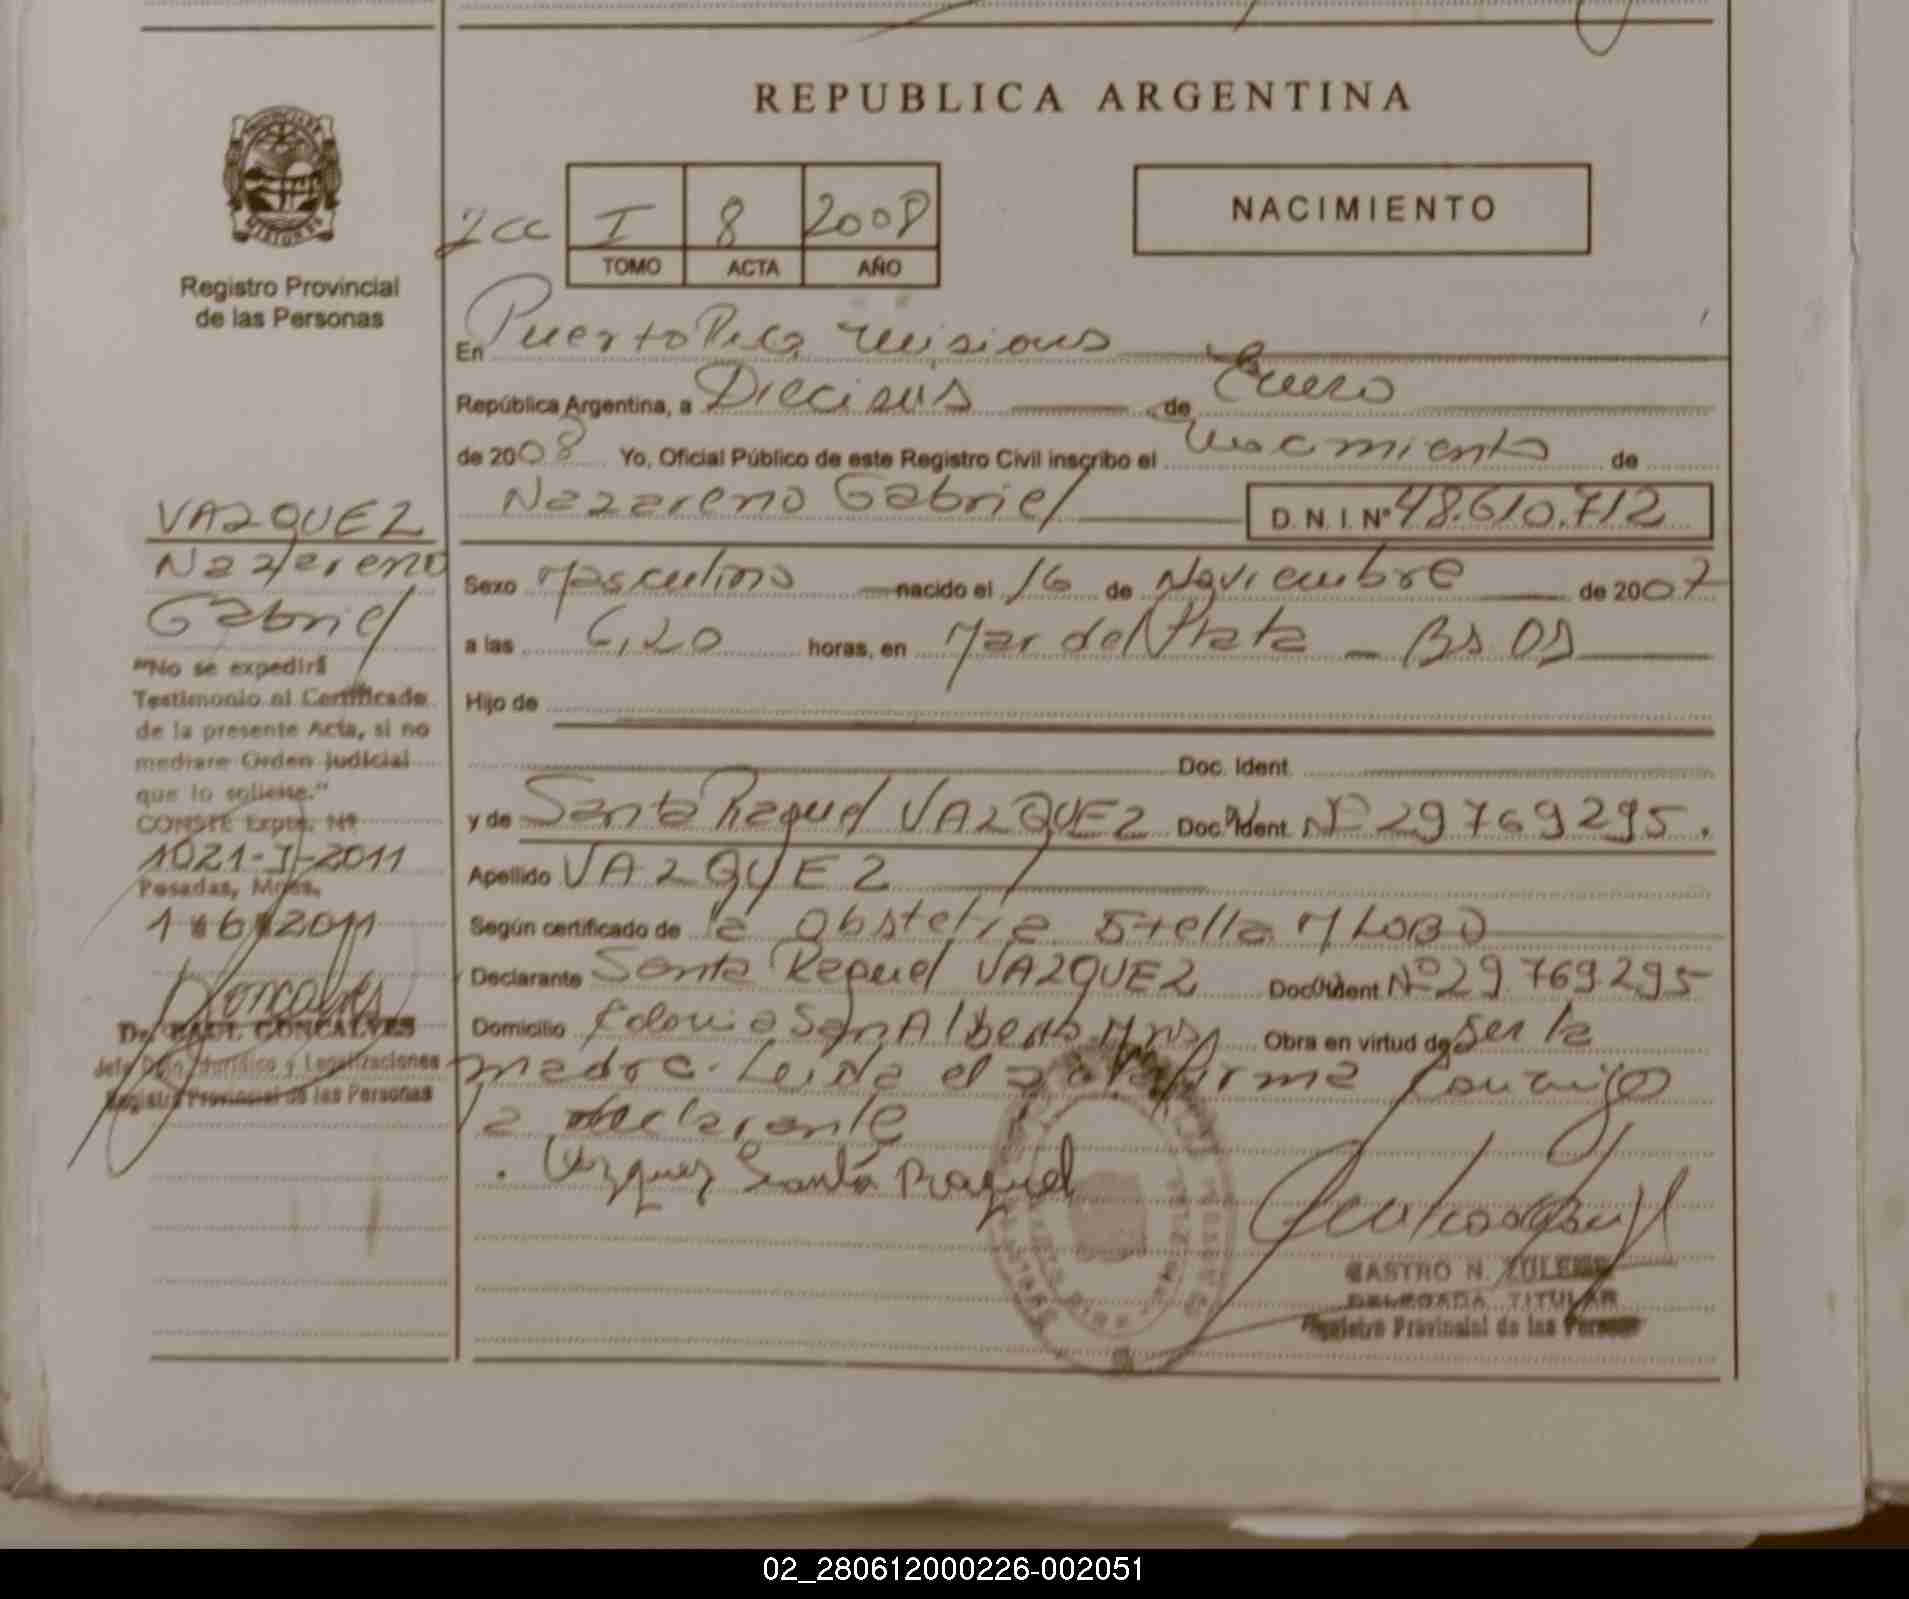 REPUBLICA ARGENTINA
Registro Provincial
de las Personas
2cc I 8 2008
TOMO ACTA AÑO
NACIMIENTO
En Puerto Rico Misiones
República Argentina, a Dieciseis de Enero
de 2008 Yo, Oficial Público de este Registro Civil inscribo el Nacimiento de
Nazareno Gabriel D. N. I. Nº 48.610.712
Sexo Masculino nacido el 16 de Noviembre de 2007
a las 6,20 horas, en Mar del Plata - Bs As
Hijo de
Doc. Ident.
y de Santa Raquel VAZQUEZ Doc. Ident. Nº 29769295.
Apellido VAZQUEZ
Según certificado de la obstetra Stella M LOBO
Declarante Santa Raquel VAZQUEZ Doc. Ident. Nº 29.769.295
Domicilio Colonia San Alberto Mnes Obra en virtud de Ser la
madre. Leida el acta firma conmigo
la declarante
Vazquez Santa Raquel
CASTRO N. ZULEMA
DELEGADA TITULAR
Registro Provincial de las Personas
VAZQUEZ
Nazareno
Gabriel
"No se expedirá
Testimonio ni Certificado
de la presente Acta, si no
mediare Orden Judicial
que lo solicite."
CONSTE Expte. Nº
1021-J-2011
Posadas, Mnes,
1-6-2011
Goncalves
Dr. RAUL GONCALVES
Jefe Dpto. Jurídico y Legalizaciones
Registro Provincial de las Personas
02_280612000226-002051